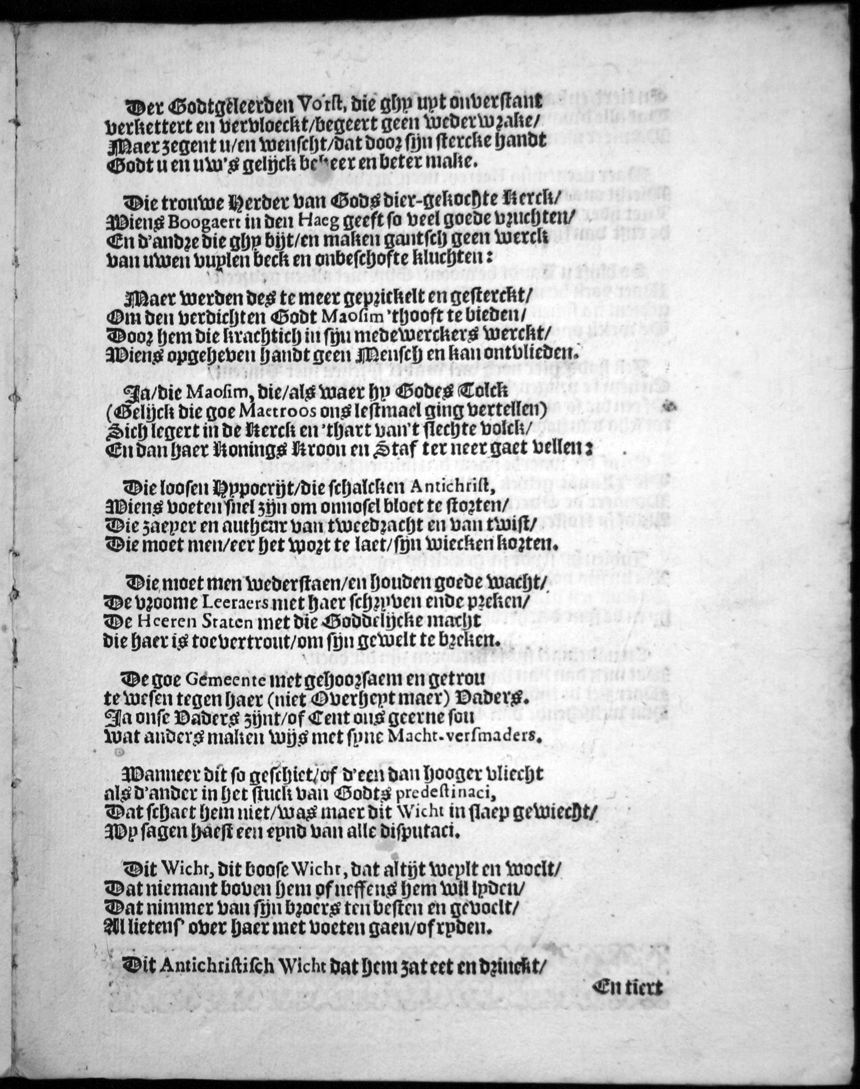 Der Godtgeleerden Vorst, die ghy uyt onverstant
verkettert en vervloeckt/begeert geen wederwrake/
Maer zegent u/en wenscht/dat door sijn stercke handt
Godt u en uw's gelijck bekeer en beter make.
Die trouwe Herder van Gods dier-gekochte Kerck/
Wiens Boogaert in den Haeg geeft so veel goede vruchten/
En d'andre die ghy bijt/en maken gantsch geen werck
van uwen vuylen beck en onbeschofte kluchten:
Maer werden des te meer geprickelt en gesterckt/
Om den verdichten Godt Maosim 'thooft te bieden/
Door hem die krachtich in sijn medewerckers werckt/
Wiens opgeheven handt geen Mensch en kan ontvlieden.
Ja/die Maosim, die/als waer hy Godes Tolck
(Gelijck die goe Maetroos ons lestmael ging vertellen)
Sich legert in de Kerck en 'thart van't slechte volck/
En dan haer Konings Kroon en Staf ter neer gaet vellen:
Die loosen Hypocrijt/die schalcken Antichrist,
Wiens voeten snel zijn om onnosel bloet te storten/
Die zaeyer en autheur van tweedracht en van twist/
Die moet men/eer het wort te laet/sijn wiecken korten.
Die moet men wederstaen/en houden goede wacht/
De vroome Leeraers met haer schryven ende preken/
De Heeren Staten met die Goddelijcke macht
die haer is toevertrout/om sijn gewelt te breken.
De goe Gemeente met gehoorsaem en getrou
te wesen tegen haer (niet Overheyt maer) Vaders.
Ja onse Vaders zijnt/of Cent ons geerne sou
wat anders maken wijs met syne Macht-versmaders.
Wanneer dit so geschiet/of d'een dan hooger vliecht
als d'ander in het stuck van Godts predestinaci,
Dat schaet hem niet/was maer dit Wicht in slaep gewiecht/
Wy sagen haest een eynd van alle disputaci.
Dit Wicht, dit boose Wicht, dat altijt weylt en woelt/
Dat niemant boven hem of neffens hem wil lyden/
Dat nimmer van sijn broers ten besten en gevoelt/
Al lietens' over haer met voeten gaen/of ryden.
Dit Antichristisch Wicht dat hem zat eet en drinckt/
En tiert